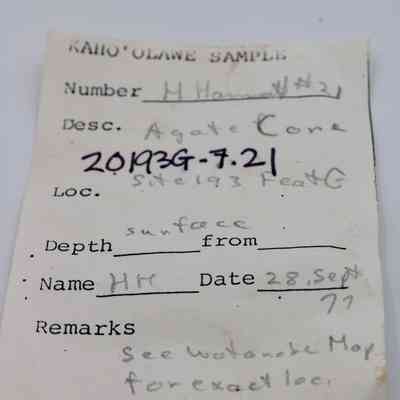 KAHO'OLAWE SAMPLE
Number H Hanna # 21
Desc. Agate Core
20193G-7.21
Loc. Site 193 Feat G
surface
Depth from
Name HH Date 28, Sept
77
Remarks
See Watanabe Map
for exact loc.